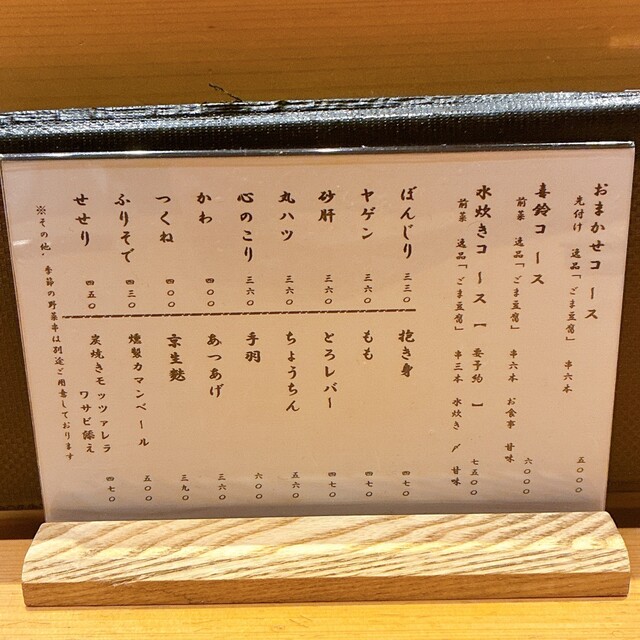 おまかせコース
先付け 逸品「ごま豆腐」 串六本 五〇〇〇
喜鈴コース
前菜 逸品「ごま豆腐」 串六本 お食事 甘味 六〇〇〇
水炊きコース [ 要予約 ] 七五〇〇
前菜 逸品「ごま豆腐」 串三本 水炊き 〆 甘味
ぼんじり 三三〇
ヤゲン 三六〇
砂肝 三六〇
丸ハツ 三六〇
心のこり 三六〇
かわ 四〇〇
つくね 四〇〇
ふりそで 四三〇
せせり 四五〇
抱き身 四七〇
もも 四七〇
とろレバー 四七〇
ちょうちん 五六〇
手羽 六〇〇
あつあげ 三六〇
京生麩 三九〇
燻製カマンベール 五〇〇
炭焼きモッツァレラ
ワサビ添え 四七〇
※その他、季節の野菜串は別途ご用意しております